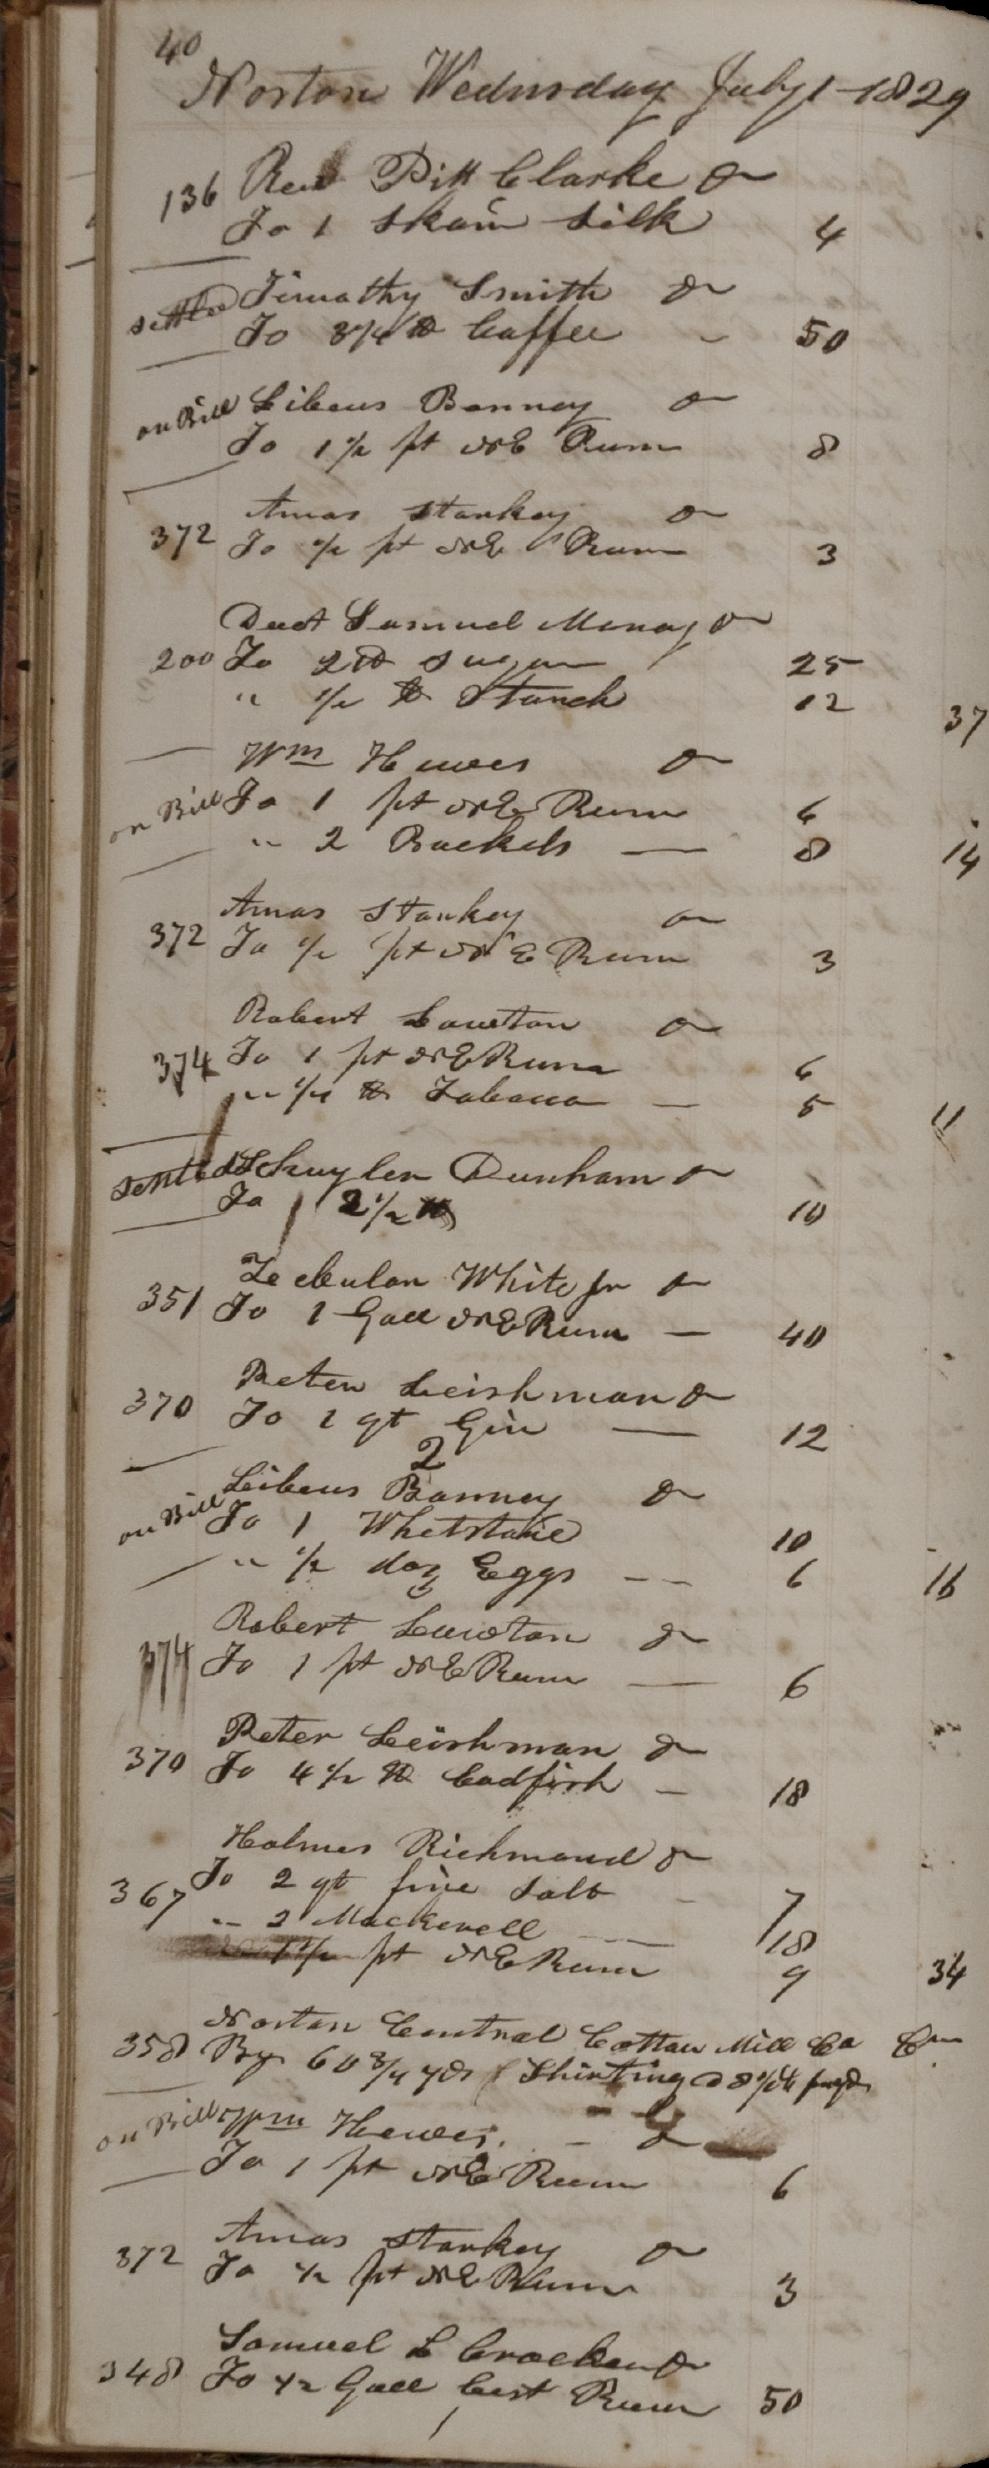 40
Norton Wednsday July 1 1829
136 Rev Pitt Clarke Dr
To 1 Skain Silk 4
settled Timothy Smith Dr
To 3 1/4 lb Coffee - 50
on Bill Libeus Bonney Dr
To 1 1/2 pt NE Rum 8
Amos Starkey Dr
372 To 1/2 pt NE Rum 3
Samuel Morey Dr
200 To 2 lb Sugar 25
" 1/2 lb Starch 12 37
Wm Hewes Dr
on Bill To 1 pt NE Rum 6
" 2 8 14
Amos Starkey Dr
372 To 1/2 pt NE Rum 3
Robert Lawton Dr
374 To 1 pt NE Rum 6
" 1/4 lb Tobacco - 5 11
settled Schuyler Dunham Dr
To 2 1/2 lb 10
Zebulon White Jr Dr
351 To 1 Gall NE Rum - 40
Peter Leishman Dr
370 To 1 qt Gin - 12
2
on Bill Libeus Bonney Dr
To 1 Whetstone 10
" 1/2 doz Eggs - - 6 16
Robert Lawton Dr
374 To 1 pt NE Rum - 6
Peter Leishman Dr
370 To 4 1/2 lb Codfish - 18
Holmes Richmond Dr
367 To 2 qt fine Salt - 7
" 2 Mackerell - 18
1 1/2 pt NE Rum 9 34
Norton Central Cotton Mill Co Cr
358 By 60 3/4 yds Shirting
on Bill Wm Hewes - Dr
To 1 pt NE Rum 6
Amos Starkey Dr
372 To 1/2 pt NE Rum 3
Samuel L Crocker Dr
348 To 1/2 Gall best Rum 50